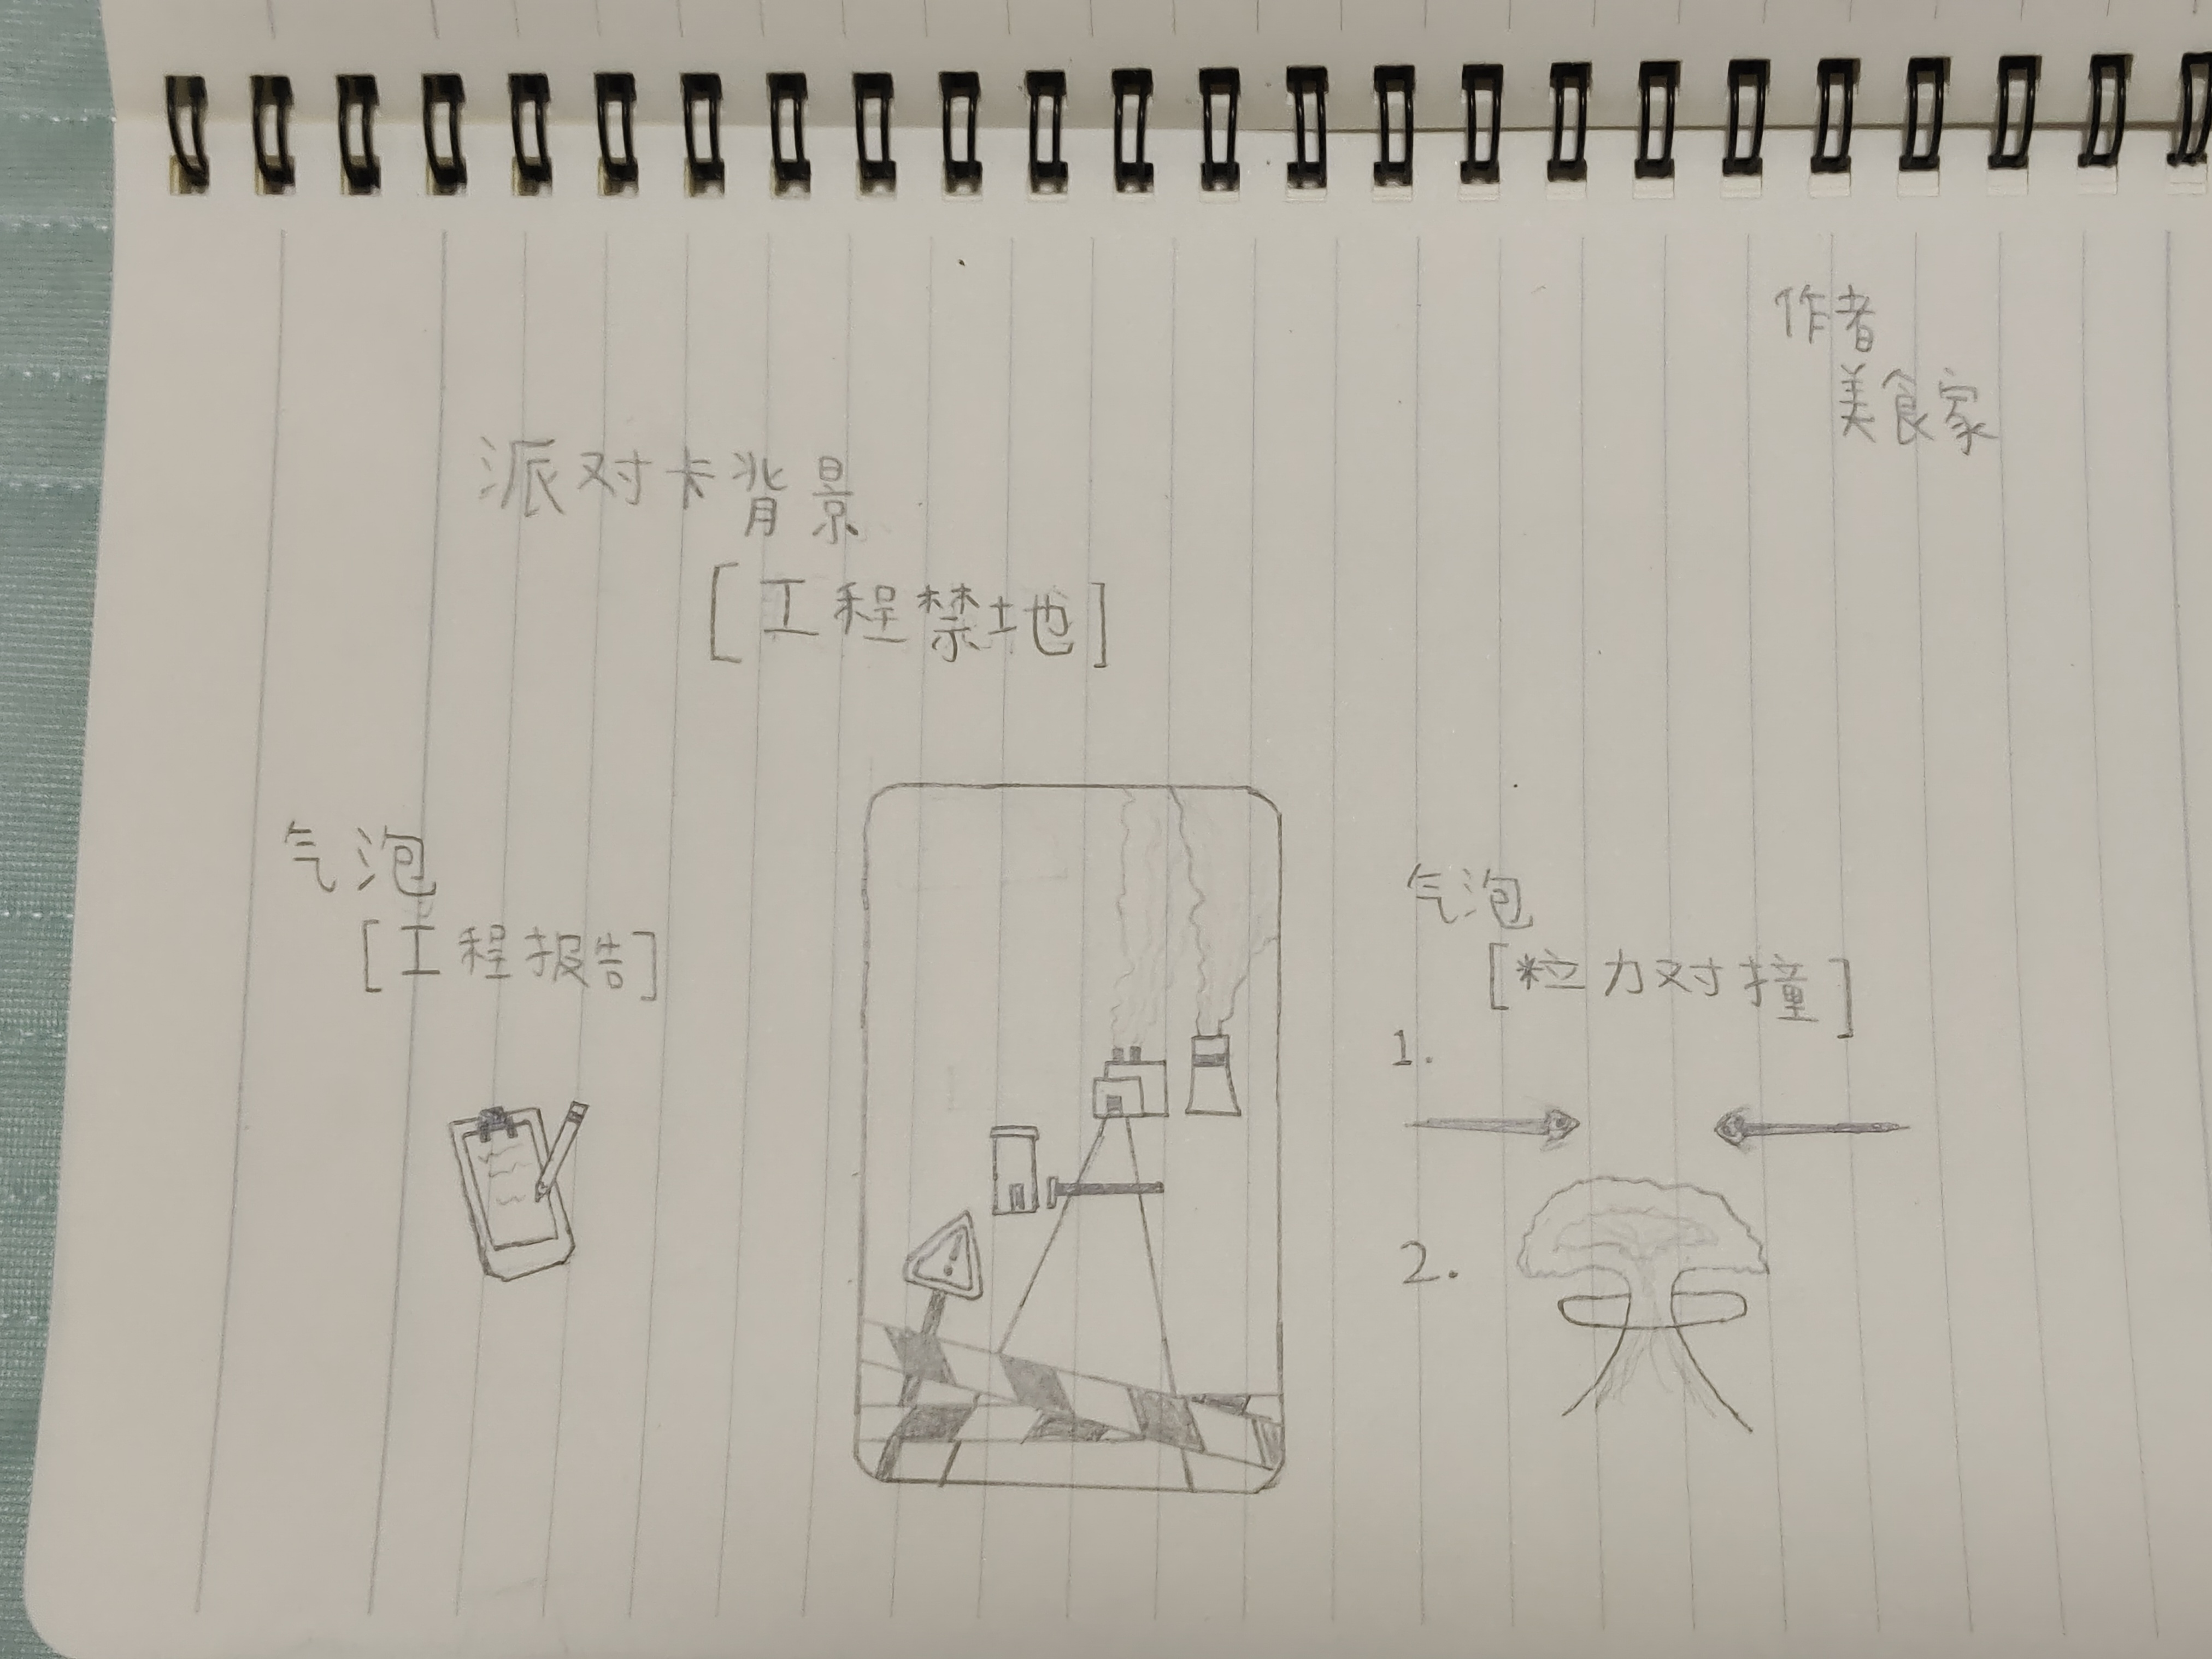 作者
美食家
派对卡背景
[工程禁地]
气泡
[工程报告]
气泡
[粒力对撞]
1.
!
2.